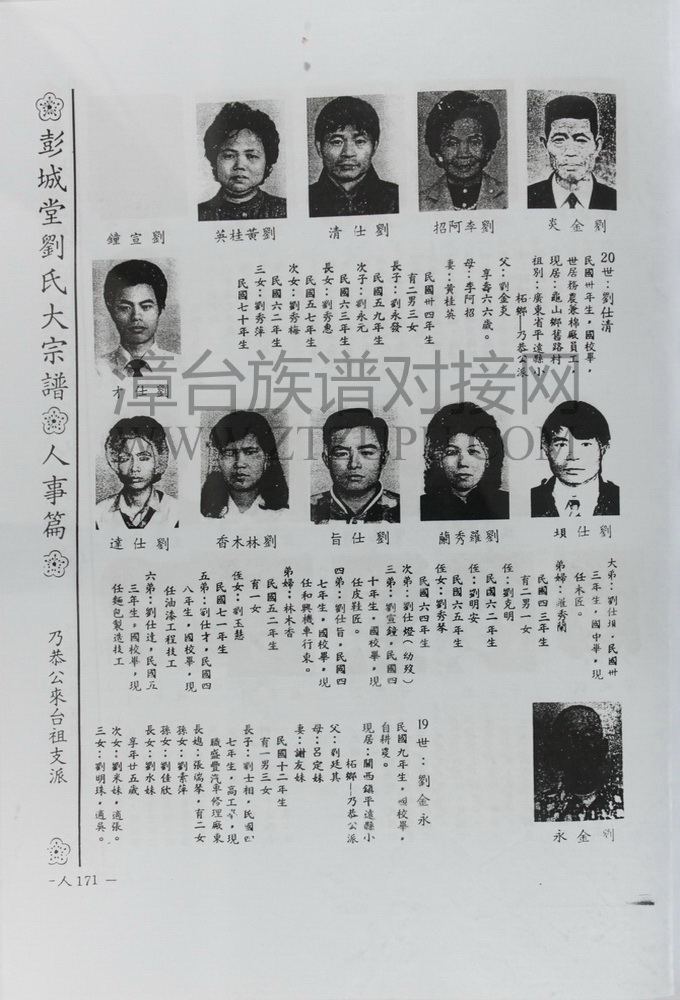 彭城堂劉氏大宗譜
人事篇
乃恭公來台祖支派
-人171-
劉金炎
劉李阿招
劉仕清
劉黃桂英
劉宣鐘
20世：劉仕清
民國卅年生，國校畢，
世居務農兼棉廠員工，
現居：龜山鄉舊路村
祖別：廣東省平遠縣小
柘鄉—乃恭公派
父：劉金炎
享壽六六歲。
母：李阿招
妻：黃桂英
民國卅四年生
育二男三女
長子：劉永發
民國五九年生
次子：劉永元
民國六三年生
長女：劉秀惠
民國五七年生
次女：劉秀梅
民國六二年生
三女：劉秀萍
民國七十年生
劉仕才
劉仕垻
劉羅秀蘭
劉仕旨
劉林木香
劉仕達
大弟：劉仕垻，民國卅
三年生，國中畢，現
任木匠。
弟婦：羅秀蘭
民國四三年生
育二男一女
侄：劉克明
民國六二年生
侄：劉明安
民國六五年生
侄女：劉秀琴
民國六四年生
次弟：劉仕燈（幼歿）
三弟：劉宣鐘，民國四
十年生，國校畢，現
任皮鞋匠。
四弟：劉仕旨，民國四
七年生，國校畢，現
任和興機車行東。
弟婦：林木香
民國五二年生
育一女
侄女：劉玉慧
民國七一年生
五弟：劉仕才，民國四
八年生，國校畢，現
任油漆工程技工
六弟：劉仕達，民國五
三年生，國校畢，現
任麵包製造技工
劉金永
19世：劉金永
民國九年生，國校畢，
自耕農。
現居：關西鎮平遠縣小
柘鄉—乃恭公派
父：劉廷其
母：呂定妹
妻：謝友妹
民國十二年生
育一男三女
長子：劉士相，民國四
七年生，高工畢，現
職盛豐汽車修理廠東
長媳：張瑞琴，育二女
孫女：劉素萍
孫女：劉佳欣
長女：劉水妹
享年廿五歲
次女：劉米妹，適張。
三女：劉明珠，適吳。
漳台族谱对接网